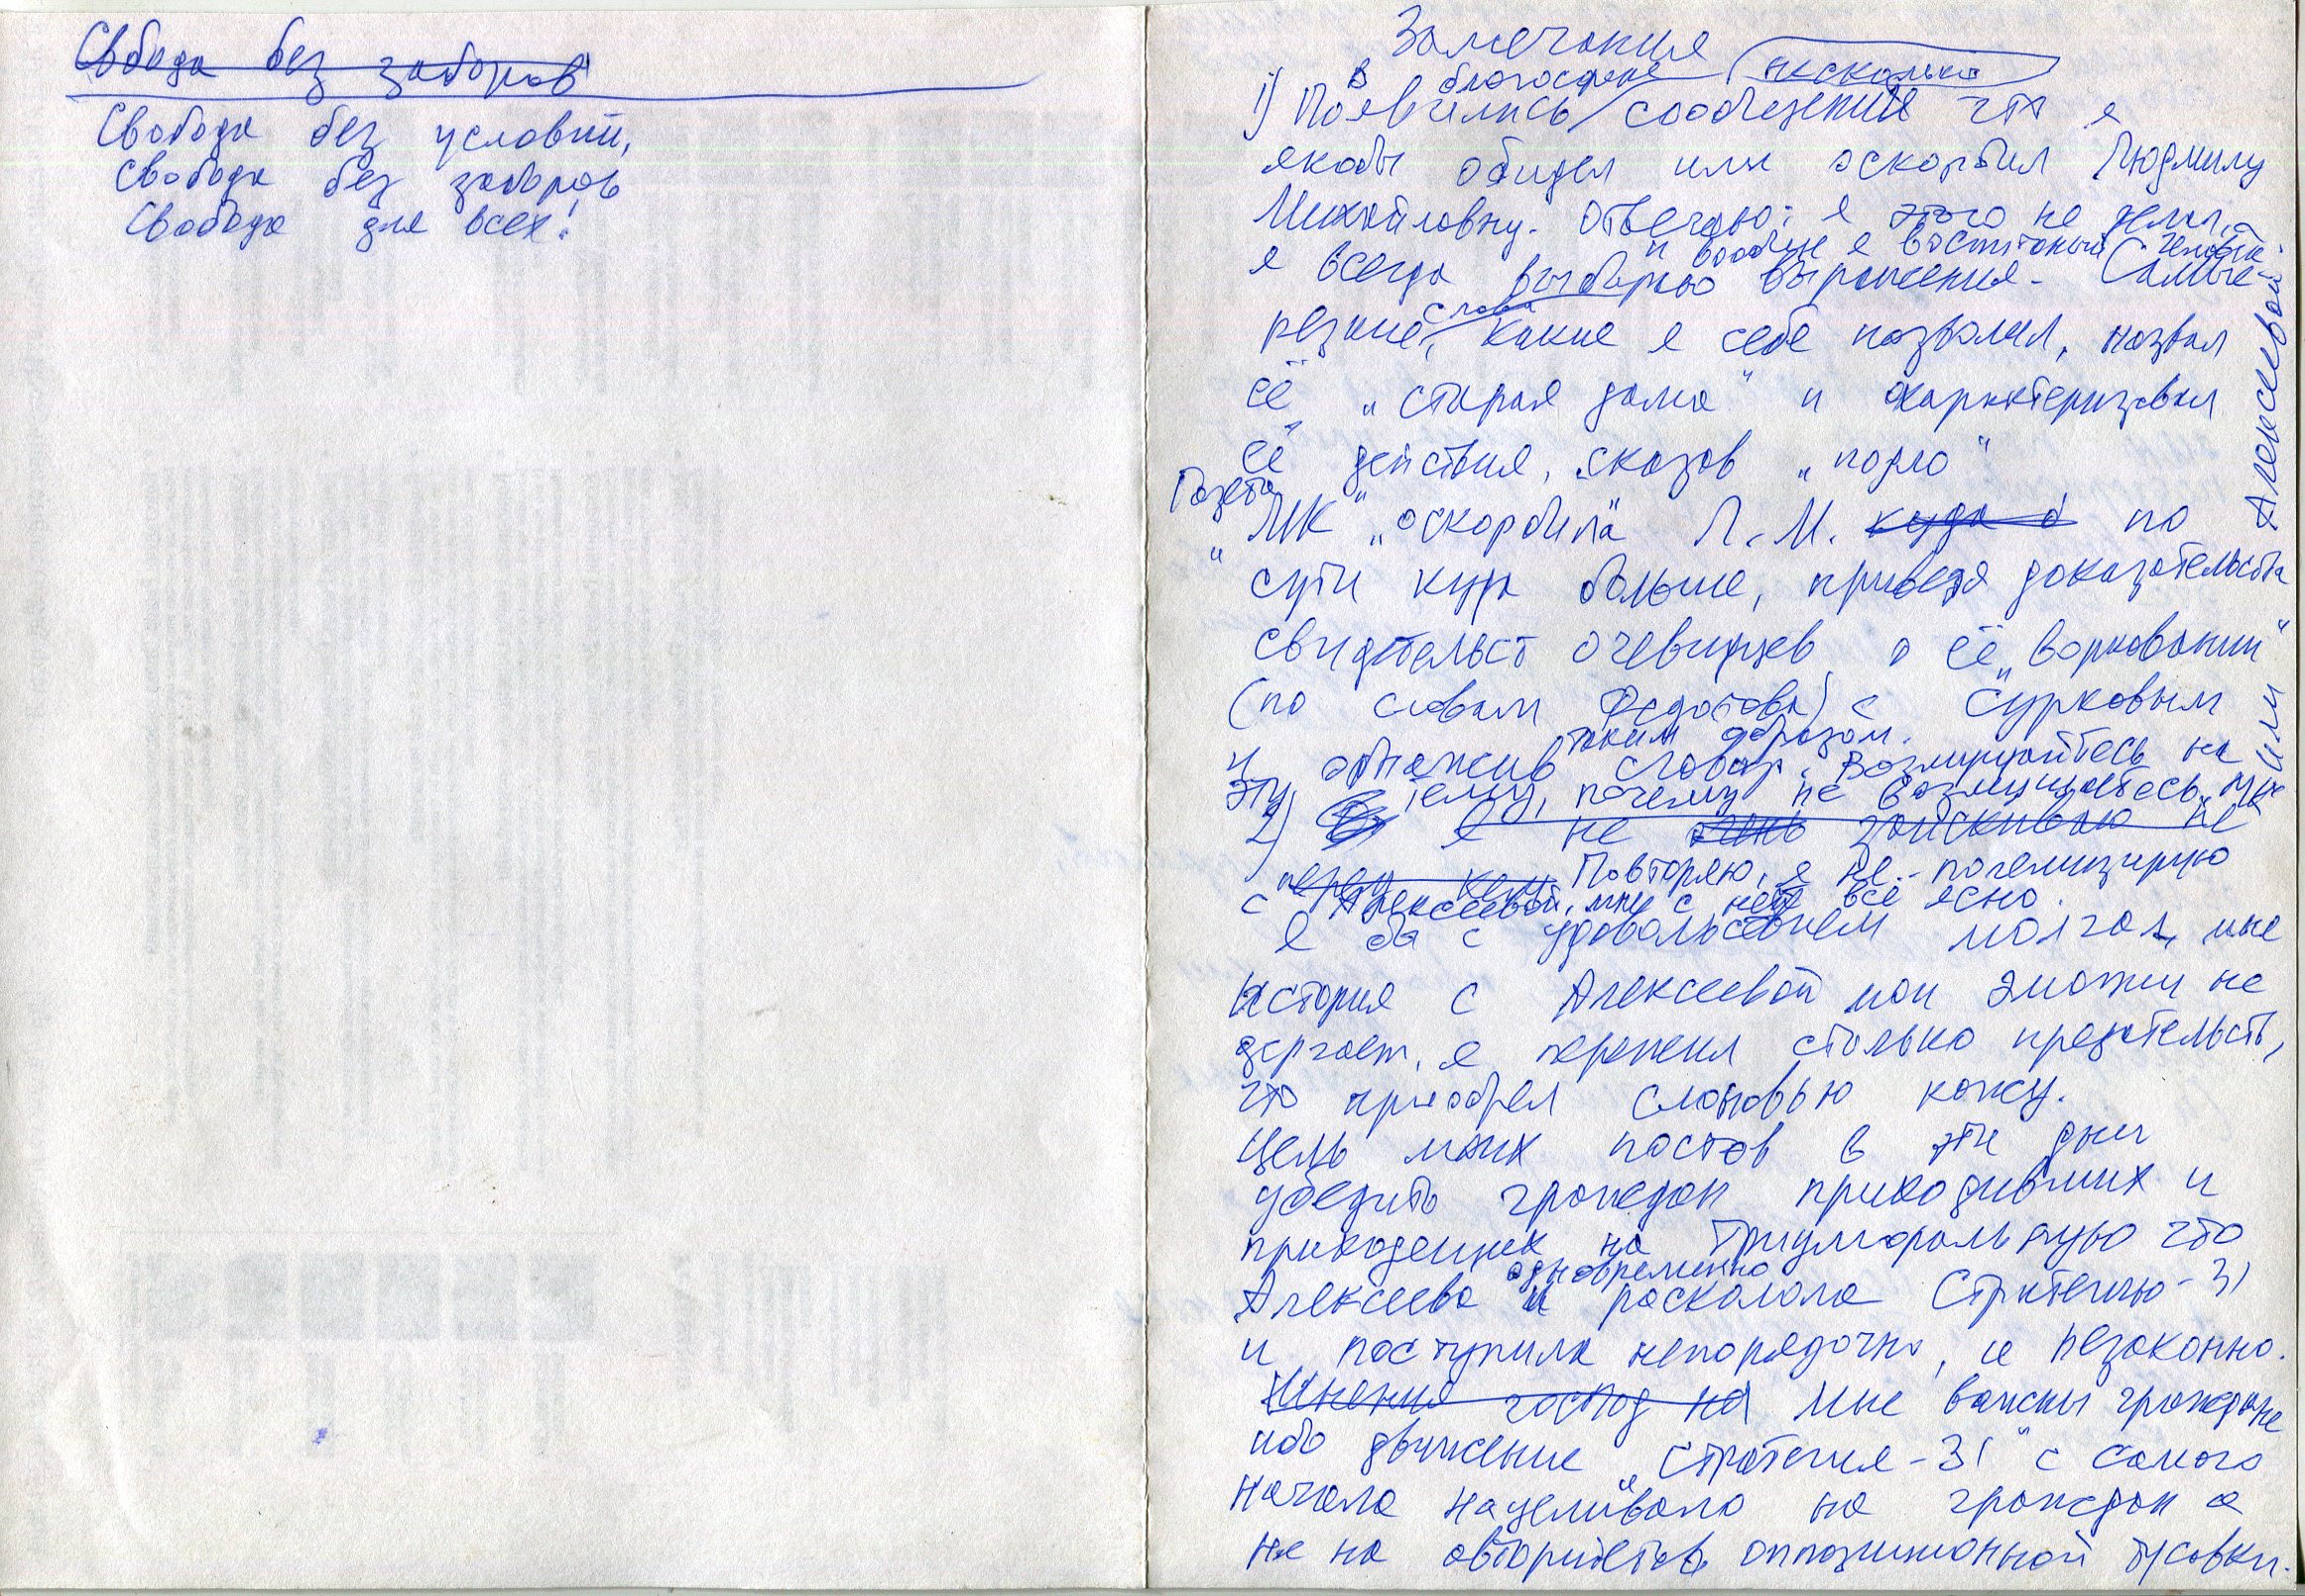 Свобода без заборов
Свобода без условий,
Свобода без заборов
Свобода для всех!
Замечания
в блогосфере несколько
1) Появились сообщения что я
якобы обидел или оскорбил Людмилу
Михайловну. Отвечаю: я этого не делал,
и вообще я воспитаный человек.
я всегда выбираю выражения. Самые
слова
резкие, какие я себе позволил, назвал
её „старая дама" и охарактеризовал
её действия, сказав „подло"
Газета
„МК" „оскорбила" Л.М. куда б по
сути куда больше, приведя доказательства
свидетельст очевидцев о её „ворковании"
(по словам Федотова) с Сурковым
таким образом.
и обнажив сговор. Возмущайтесь на
эту тему, почему не возмущаетесь
или Алексеевой
2) я не заискиваю не
перед кем Повторяю, я не полемизирую
с Алексеевой, мне с ней всё ясно.
Я бы с удовольствием молчал, мне
история с Алексеевой мои эмоции не
дергает, я пережил столько предательств,
что приобрел слоновью кожу.
Цель моих постов в эти дни
убедить граждан приходивших и
приходящих на Триумфальную что
одновременно
Алексеева и расколола Стратегию-31
и поступила непорядочно, и незаконно.
Мнения господ на Мне важны граждане
ибо движение „Стратегия-31" с самого
начала нацеливало на граждан а
не на авторитетов оппозиционной тусовки.